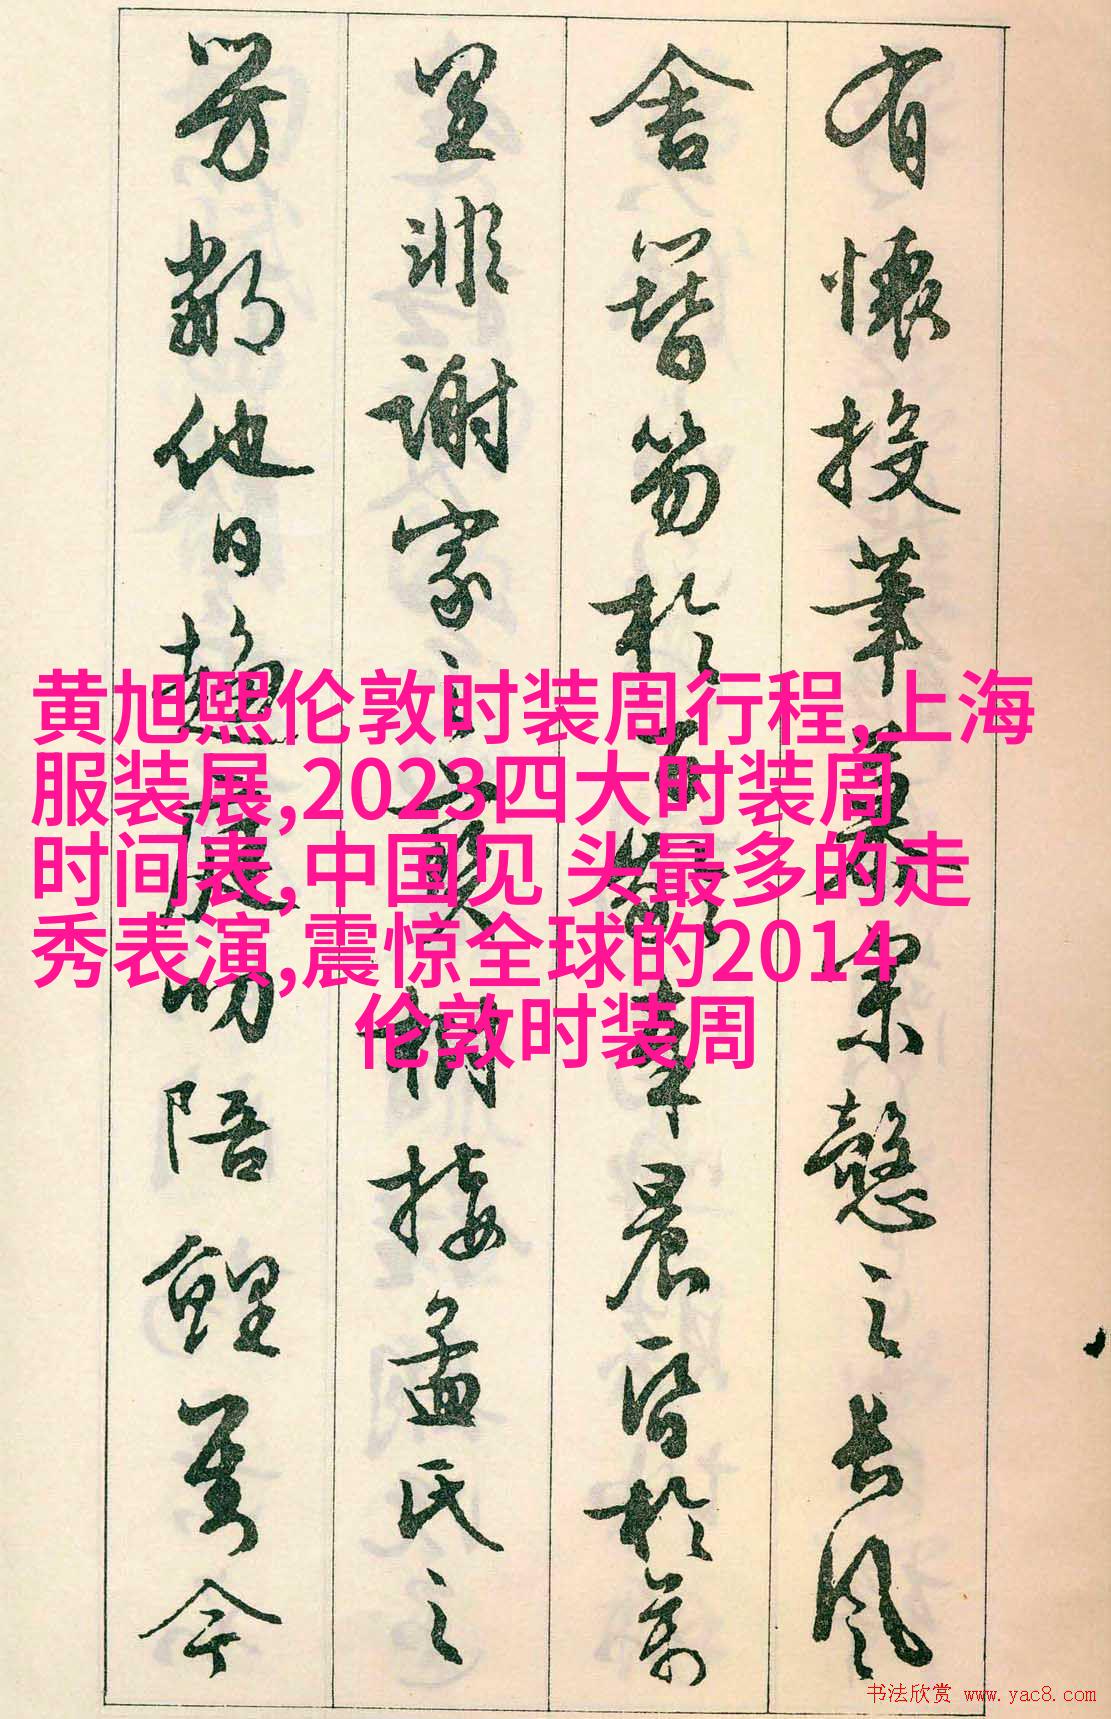 有懷投筆慕宗慤之長風
舍簪笏於百齡奉晨昏於萬
里非謝家之寶樹接孟氏之
芳鄰他日趨庭叨陪鯉對今
黄旭熙伦敦时装周行程,上海
服装展,2023四大时装周
时间表,中国见 头最多的走
秀表演,震惊全球的2014
伦敦时装周
书法欣赏 www.yac8.com